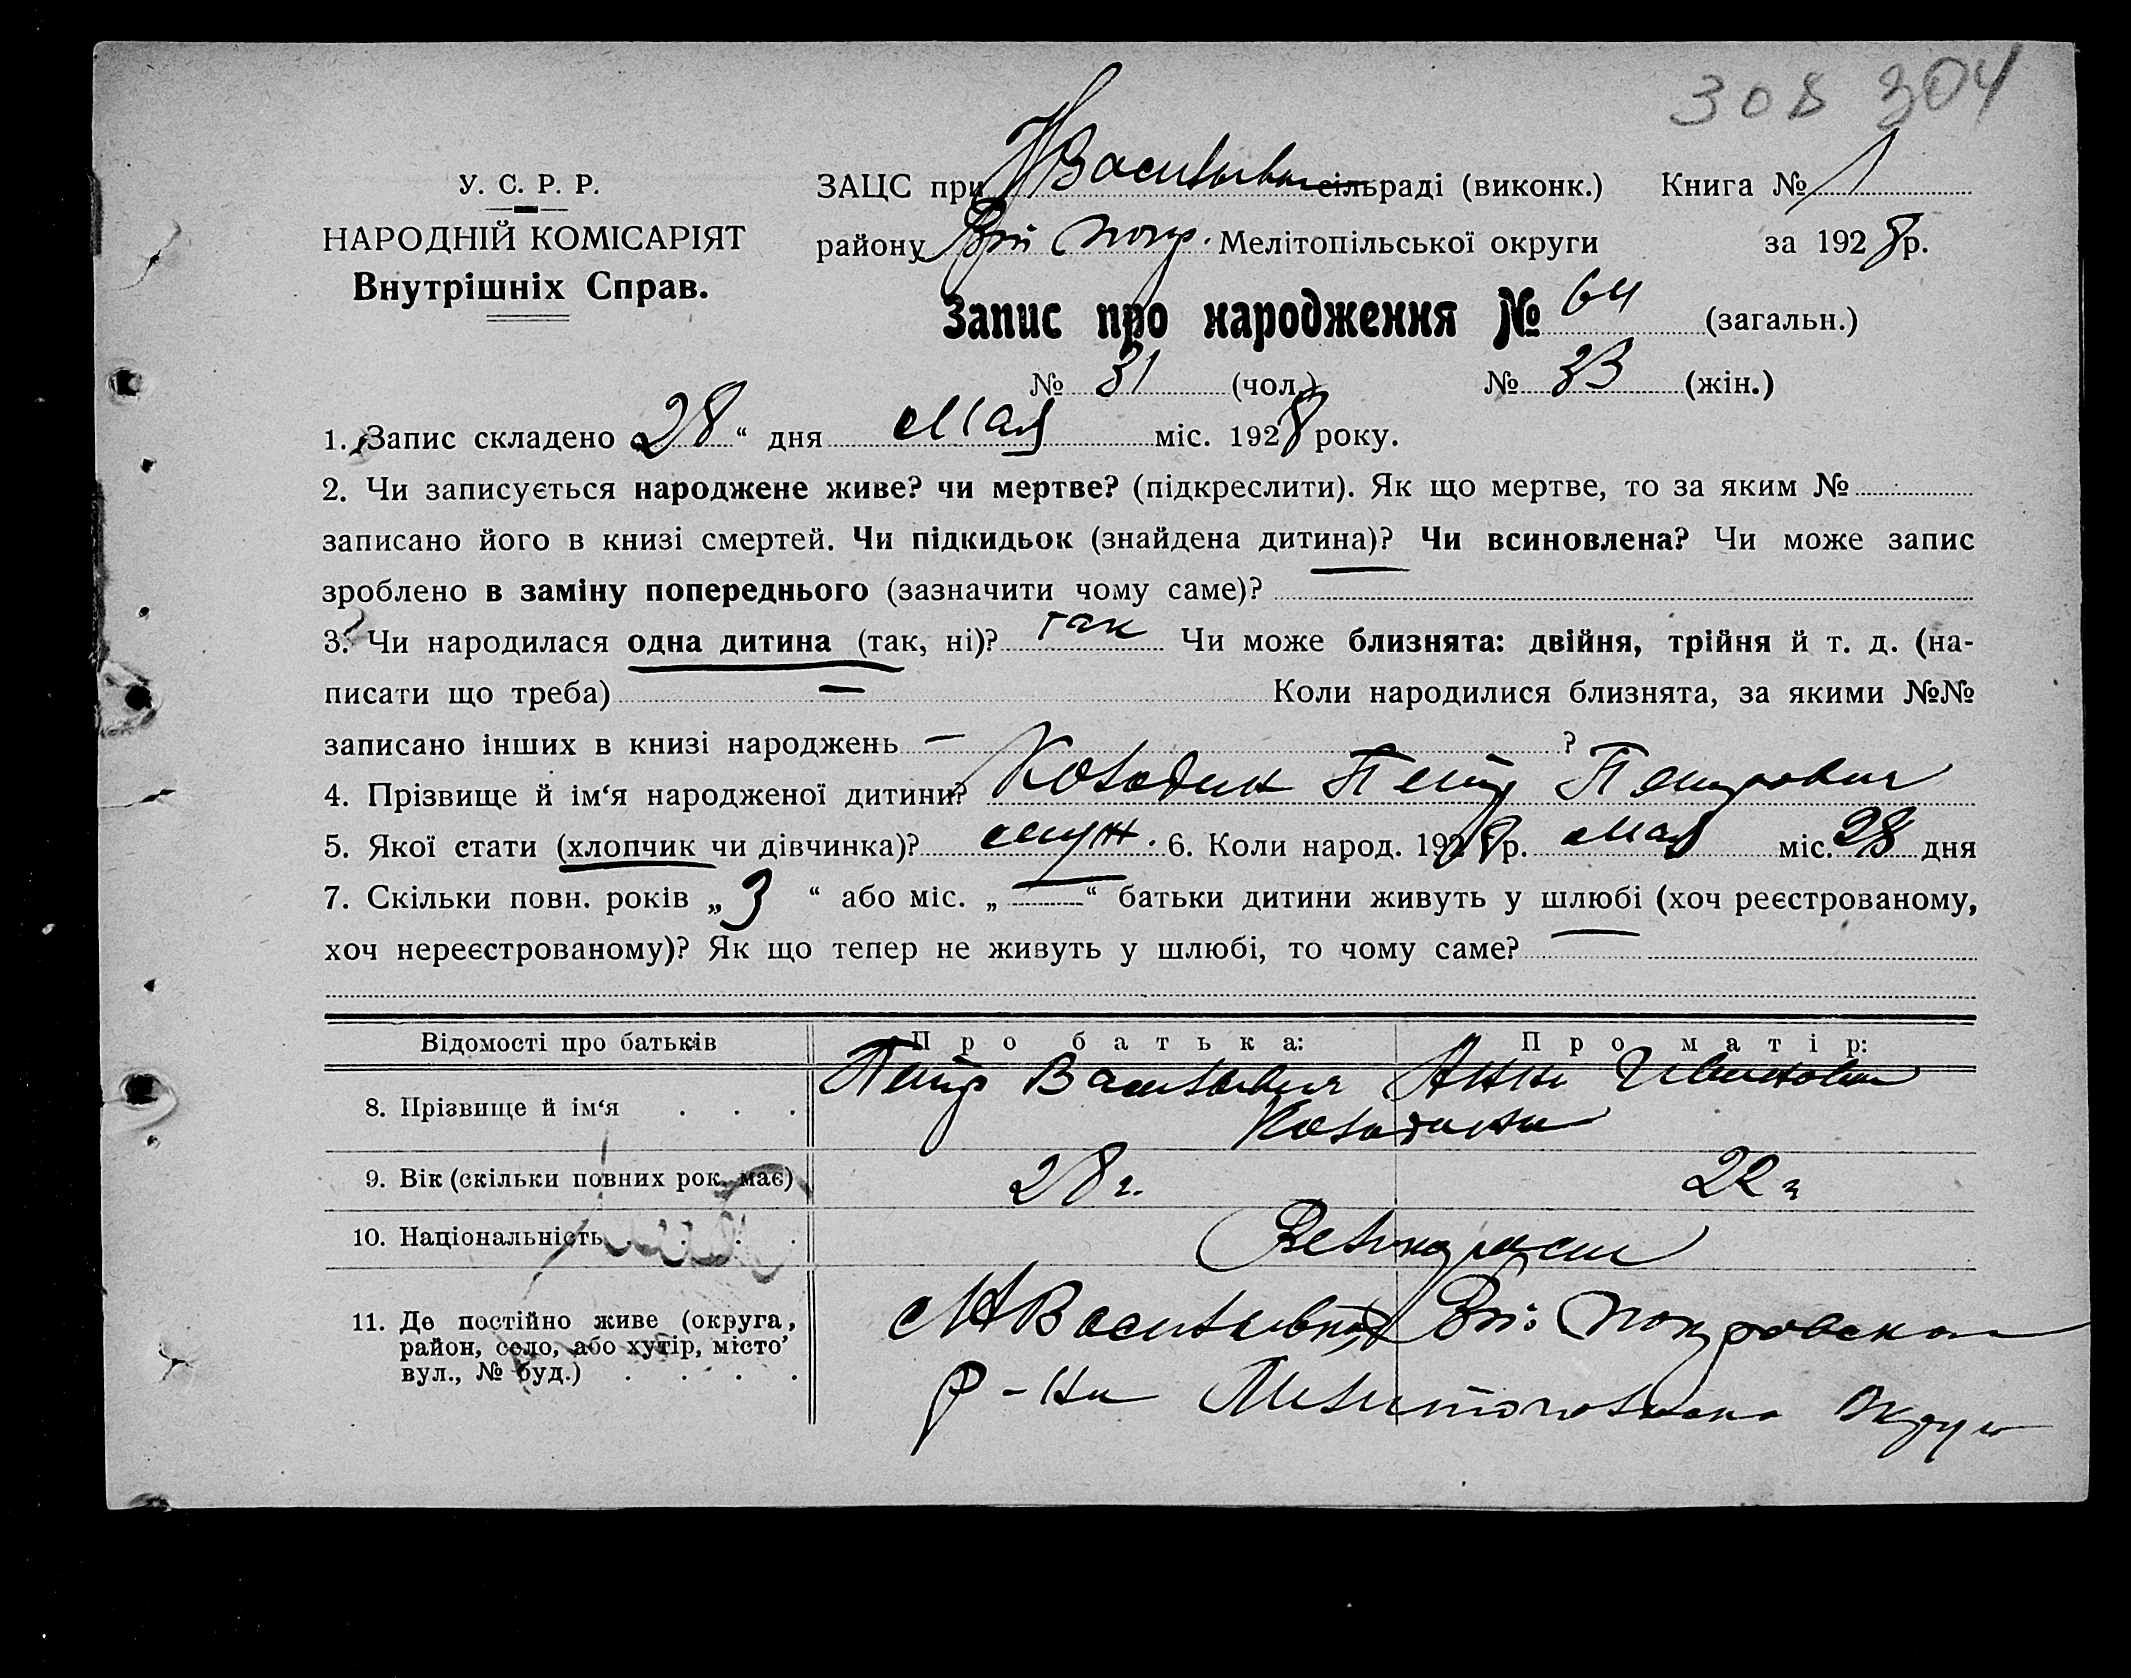 308 304
У. С. Р. Р.
НАРОДНІЙ КОМІСАРІЯТ
Внутрішніх Справ.
ЗАЦС при НВасильевск сільраді (виконк.) Книга № 1
району Вти Покр. Мелітопільської округи за 1928 р.
Запис про народження № 64 (загальн.)
№ 31 (чол.) № 33 (жін.)
1. Запис складено „28“ дня Мая міс. 1928 року.
2. Чи записується народжене живе? чи мертве? (підкреслити). Як що мертве, то за яким №
записано його в книзі смертей. Чи підкидьок (знайдена дитина)? Чи всиновлена? Чи може запис
зроблено в заміну попереднього (зазначити чому саме)? —
3. Чи народилася одна дитина (так, ні)? так Чи може близнята: двійня, трійня й т. д. (на-
писати що треба) — Коли народилися близнята, за якими №№
записано інших в книзі народжень — ?
4. Прізвище й ім‘я народженої дитини? Колодин Петр Петрович
5. Якої стати (хлопчик чи дівчинка)? муж. 6. Коли народ. 1928 р. Мая міс. 28 дня
7. Скільки повн. років „3“ або міс. „—“ батьки дитини живуть у шлюбі (хоч реєстрованому,
хоч нереєстрованому)? Як що тепер не живуть у шлюбі, то чому саме? —
Відомості про батьків Про батька: Про матір:
8. Прізвище й ім‘я . . . Петр Васильевич Анна Ивановна
Колодины
9. Вік (скільки повних рок. має) 28 г. 22 г
10. Національність . . . . Великоросы
11. Де постійно живе (округа,
район, село, або хутір, місто’
вул., № буд.) . . . .
Васильевка Вт: Покровского
р-на Мелитопольского Округа